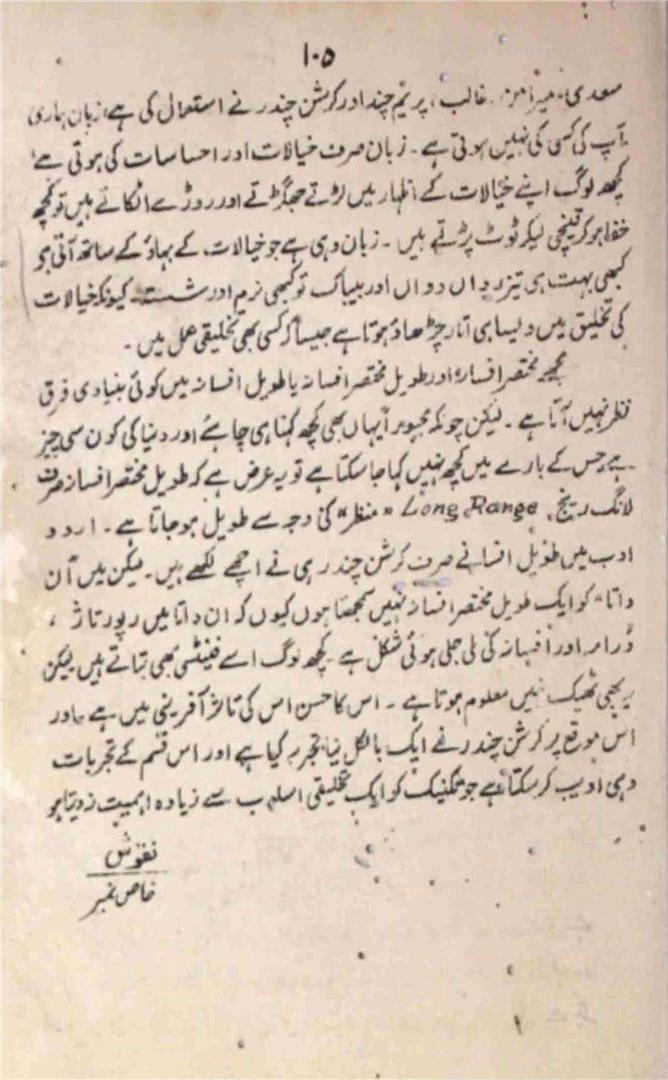 ۱۰۵
سعدی، میر، غالب، پریم چند اور کرشن چندر نے استعمال کی ہے، زبان ہماری
آپ کی کسی کی نہیں ہوتی ہے۔ زبان صرف خیالات اور احساسات کی ہوتی ہے
کچھ لوگ اپنے خیالات کے اظہار میں لڑتے جھگڑتے اور روڑے اٹکاتے ہیں تو کچھ
خفا ہو کر قینچی لیکر ٹوٹ پڑتے ہیں۔ زبان وہی ہے جو خیالات کے بہاؤ کے ساتھ آتی ہو
کبھی بہت ہی تیز رواں دواں اور بیباک تو کبھی نرم اور سست کیونکہ خیالات
کی تخلیق میں ویسا ہی اتار چڑھاؤ ہوتا ہے جیسا کہ کسی بھی تخلیقی عمل میں۔
مجھے مختصر افسانہ اور طویل مختصر افسانہ یا طویل افسانہ میں کوئی بنیادی فرق
نظر نہیں آتا ہے۔ لیکن چونکہ مجبوراً یہاں بھی کچھ کہنا ہی چاہئے اور دنیا کی کون سی چیز
ہے جس کے بارے میں کچھ نہیں کہا جا سکتا ہے تو یہ عرض ہے کہ طویل مختصر افسانہ صرف
لانگ رینج Long Range "منظر" کی وجہ سے طویل ہو جاتا ہے۔ اردو
ادب میں طویل افسانے صرف کرشن چندر ہی نے اچھے لکھے ہیں۔ لیکن میں آن
داتا" کو ایک طویل مختصر افسانہ نہیں سمجھتا ہوں کیوں کہ ان داتا میں رپورتاژ،
ڈرامہ اور افسانہ کی ملی جلی ہوئی شکل ہے۔ کچھ لوگ اسے فینٹسی بھی بتاتے ہیں لیکن
یہ بھی ٹھیک نہیں معلوم ہوتا ہے۔ اس کا حسن اس کی تاثر آفرینی میں ہے۔ اور
اس موقع پر کرشن چندر نے ایک بالکل نیا تجربہ کیا ہے اور اس قسم کے تجربات
وہی ادیب کر سکتا ہے جو تکنیک کو ایک تخلیقی اسلوب سے زیادہ اہمیت نہ دیتا ہو
نقوش
خاص نمبر